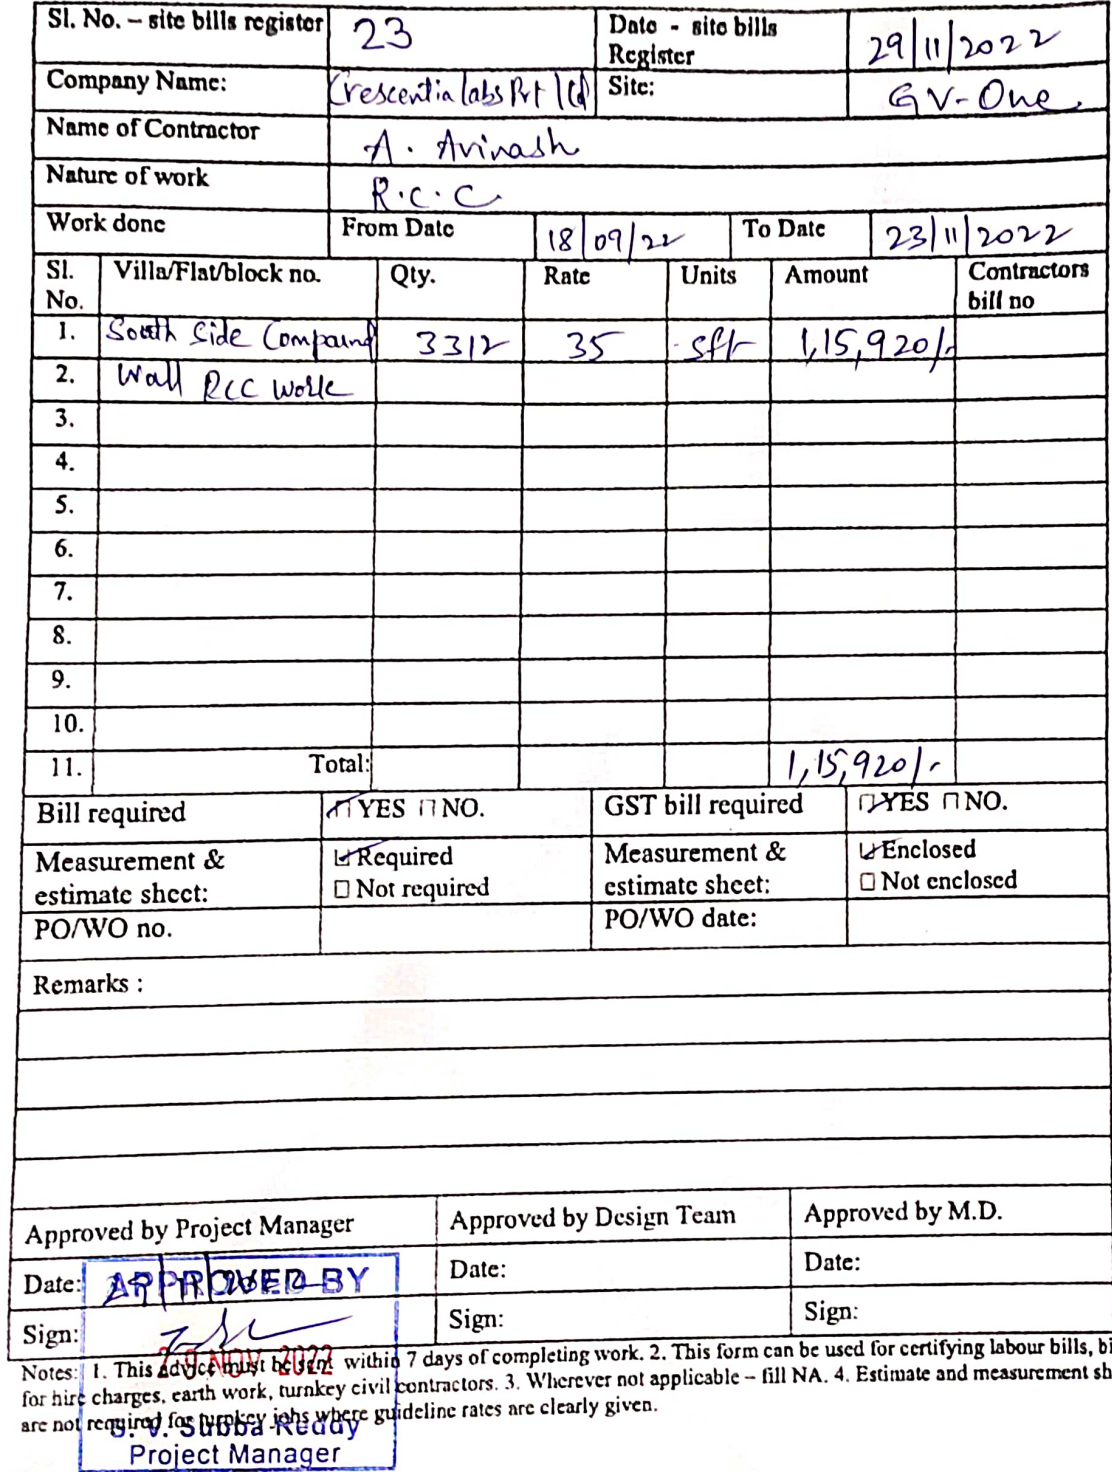 Sl. No. – site bills register 23 Date - site bills Register 29/11/2022
Company Name: Crescentia labs Pvt ltd Site: GV-One
Name of Contractor A. Avinash
Nature of work R.C.C
Work done From Date 18/09/22 To Date 23/11/2022
Sl. No. Villa/Flat/block no. Qty. Rate Units Amount Contractors bill no
1. South Side Compaund 3312 35 sft 1,15,920/-
2. Wall RCC work
3.
4.
5.
6.
7.
8.
9.
10.
11. Total: 1,15,920/-
Bill required YES NO. GST bill required YES NO.
Measurement & estimate sheet: Required Not required Measurement & estimate sheet: Enclosed Not enclosed
PO/WO no. PO/WO date:
Remarks :
Approved by Project Manager Approved by Design Team Approved by M.D.
Date: 29/11/2022 Date: Date:
APPROVED BY
Sign: Sign: Sign:
29 NOV 2022
Notes: 1. This advice must be sent within 7 days of completing work. 2. This form can be used for certifying labour bills, bi
for hire charges, earth work, turnkey civil contractors. 3. Wherever not applicable – fill NA. 4. Estimate and measurement sh
are not required for turnkey jobs where guideline rates are clearly given.
S. V. Subba Reddy
Project Manager